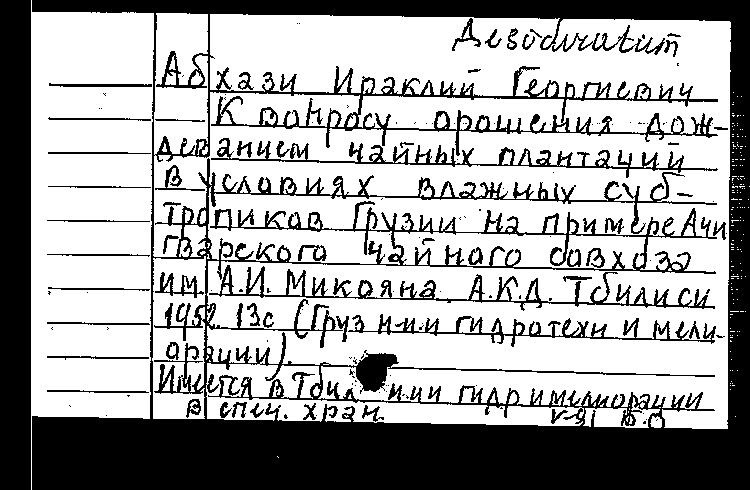 Desideratum
Абхази Ираклий Георгиевич
К вопросу орошения дож-
деванием чайных плантаций
в условиях влажных суб-
тропиков Грузии на примере Ачи
гварского чайного совхоза
им А.И. Микояна. А.К.Д. Тбилиси
1952. 13с (Груз н-и-и гидротехн и мели-
орации).
Имеется в Тбил нии гидр и мелиорации
в спец. хран.